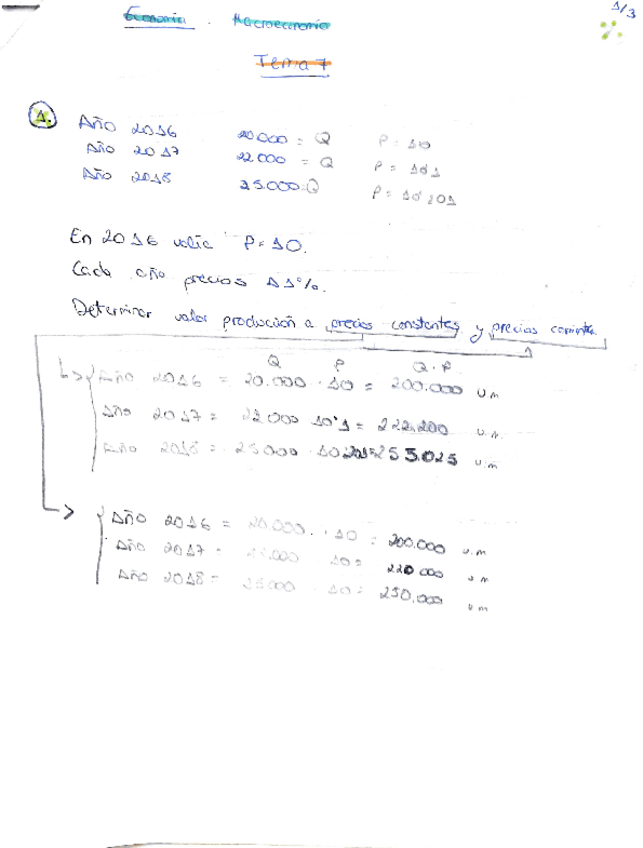 1/3
Economía . Macroeconomía
Tema 7
1. Año 2016 20.000 = Q P = 10
Año 2017 22.000 = Q P = 10'1
Año 2018 25.000 = Q P = 10'201
En 2016 valía P = 10.
Cada año precios Δ 1%.
Determinar valor producción a precios constantes y precios corrientes
Q P Q.P
Año 2016 = 20.000 · 10 = 200.000 u.m
Año 2017 = 22.000 10'1 = 222.200 u.m.
Año 2018 = 25.000 · 10'201 = 255.025 u.m
Año 2016 = 20.000 . 10 = 200.000 u.m
Año 2017 = 22.000 10 = 220.000 u.m
Año 2018 = 25.000 . 10 = 250.000 u.m